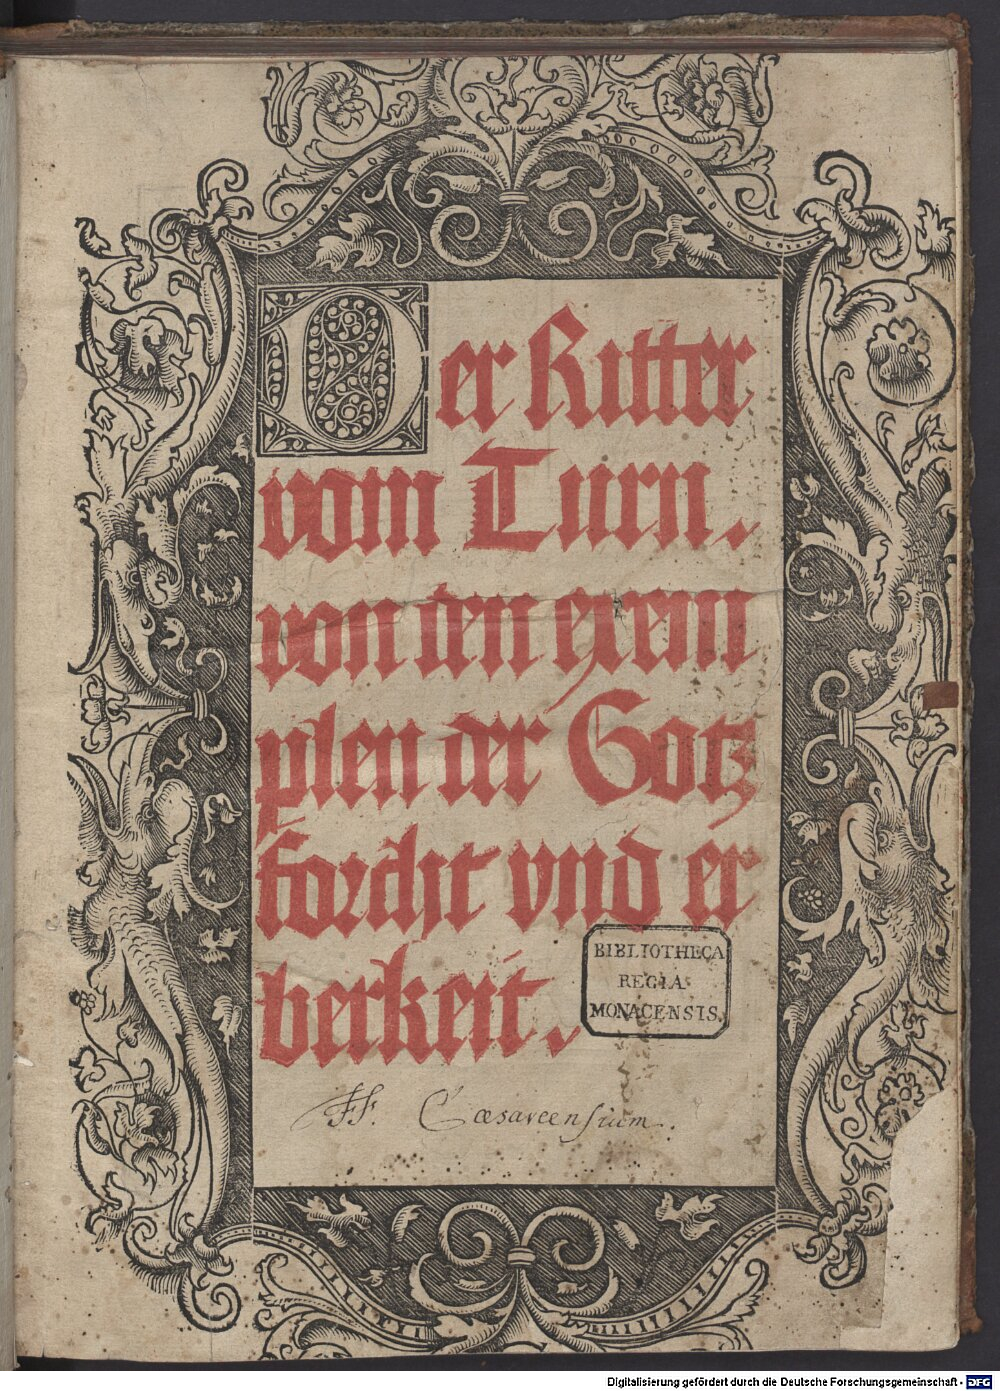 Der Ritter
vom Turn.
von den exem
plen der Gotz
forcht vnd er
berkeit.
BIBLIOTHECA
REGIA
MONACENSIS.
FF. Cæsareensium.
Digitalisierung gefördert durch die Deutsche Forschungsgemeinschaft - DFG